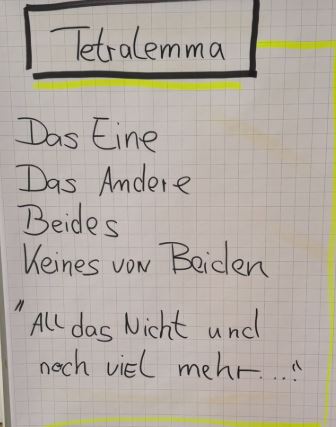 Tetralemma
Das Eine
Das Andere
Beides
Keines von Beiden
"All das Nicht und
noch viel mehr..."